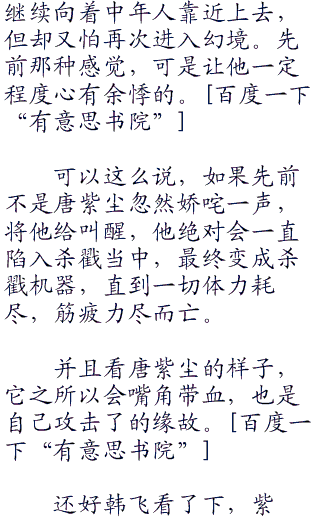 继续向着中年人靠近上去，
但却又怕再次进入幻境。先
前那种感觉，可是让他一定
程度心有余悸的。[百度一下
“有意思书院”]
可以这么说，如果先前
不是唐紫尘忽然娇咤一声，
将他给叫醒，他绝对会一直
陷入杀戳当中，最终变成杀
戳机器，直到一切体力耗
尽，筋疲力尽而亡。
并且看唐紫尘的样子，
它之所以会嘴角带血，也是
自己攻击了的缘故。[百度一
下“有意思书院”]
还好韩飞看了下，紫